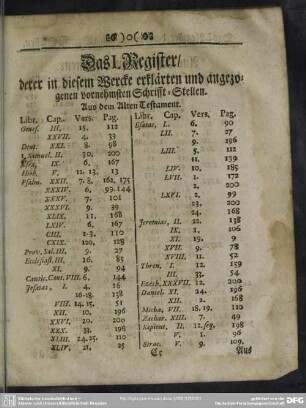 )o(
Das I. Register/
derer in diesem Wercke erklärten und angezo-
genen vornehmsten Schrifft-Stellen.
Aus dem Alten Testament.
Libr. Cap. Vers. Pag.
Genes. III, 15. 112
XXVII. 4. 33
Deut. XXI. 8. 98
1. Samuel, II. 30. 200
IX. 6. 167
Hiob, V. 12. 13. 13
Psalm. XXII. 7.8. 162, 175
XXXIV. 6. 99. 144
XXXV. 7. 101
XXXVI. 9. 39
XLIX. 11. 168
LXIV. 6. 167
CIII. 1-3. 110
CXIX. 120. 128
Prov. Sal. III. 9. 27
Ecclesiast. III, 16. 85
XI. 9. 94
Cantic. Cant. VIII. 6. 144
Jesaias, I. 4. 16
16-18. 158
VIII. 14. 15. 51
XII. 10. 196
XXVI. 20. 200
XXX. 33. 198
XLIII. 24. 25. 110
XLIV. 21. 25
Libr. Cap. Vers. Pag.
Esaias, L. 6. 90
LII. 7. 27
9. 196
LIII. 5. 112
11. 139
LIV. 10. 185
LVII. 1. 172
2. 200
LXVI. 2. 99
23. 200
24. 168
Jeremias, II. 22. 138
IX. 1. 106
XI. 19. 9
XVII. 9. 78
XVIII. 11. 52
Thren. I. 12. 159
III. 33. 54
Ezech. XXXVII. 12. 200
Daniel. XI. 24. 196
XII. 2. 168
Micha, VII. 18. 19. 110
Zachar. XIII. 7. 49
Sapient. II. 12. seq. 198
V. 1. 96
Sirac. V. 9. 109.
Cc Aus